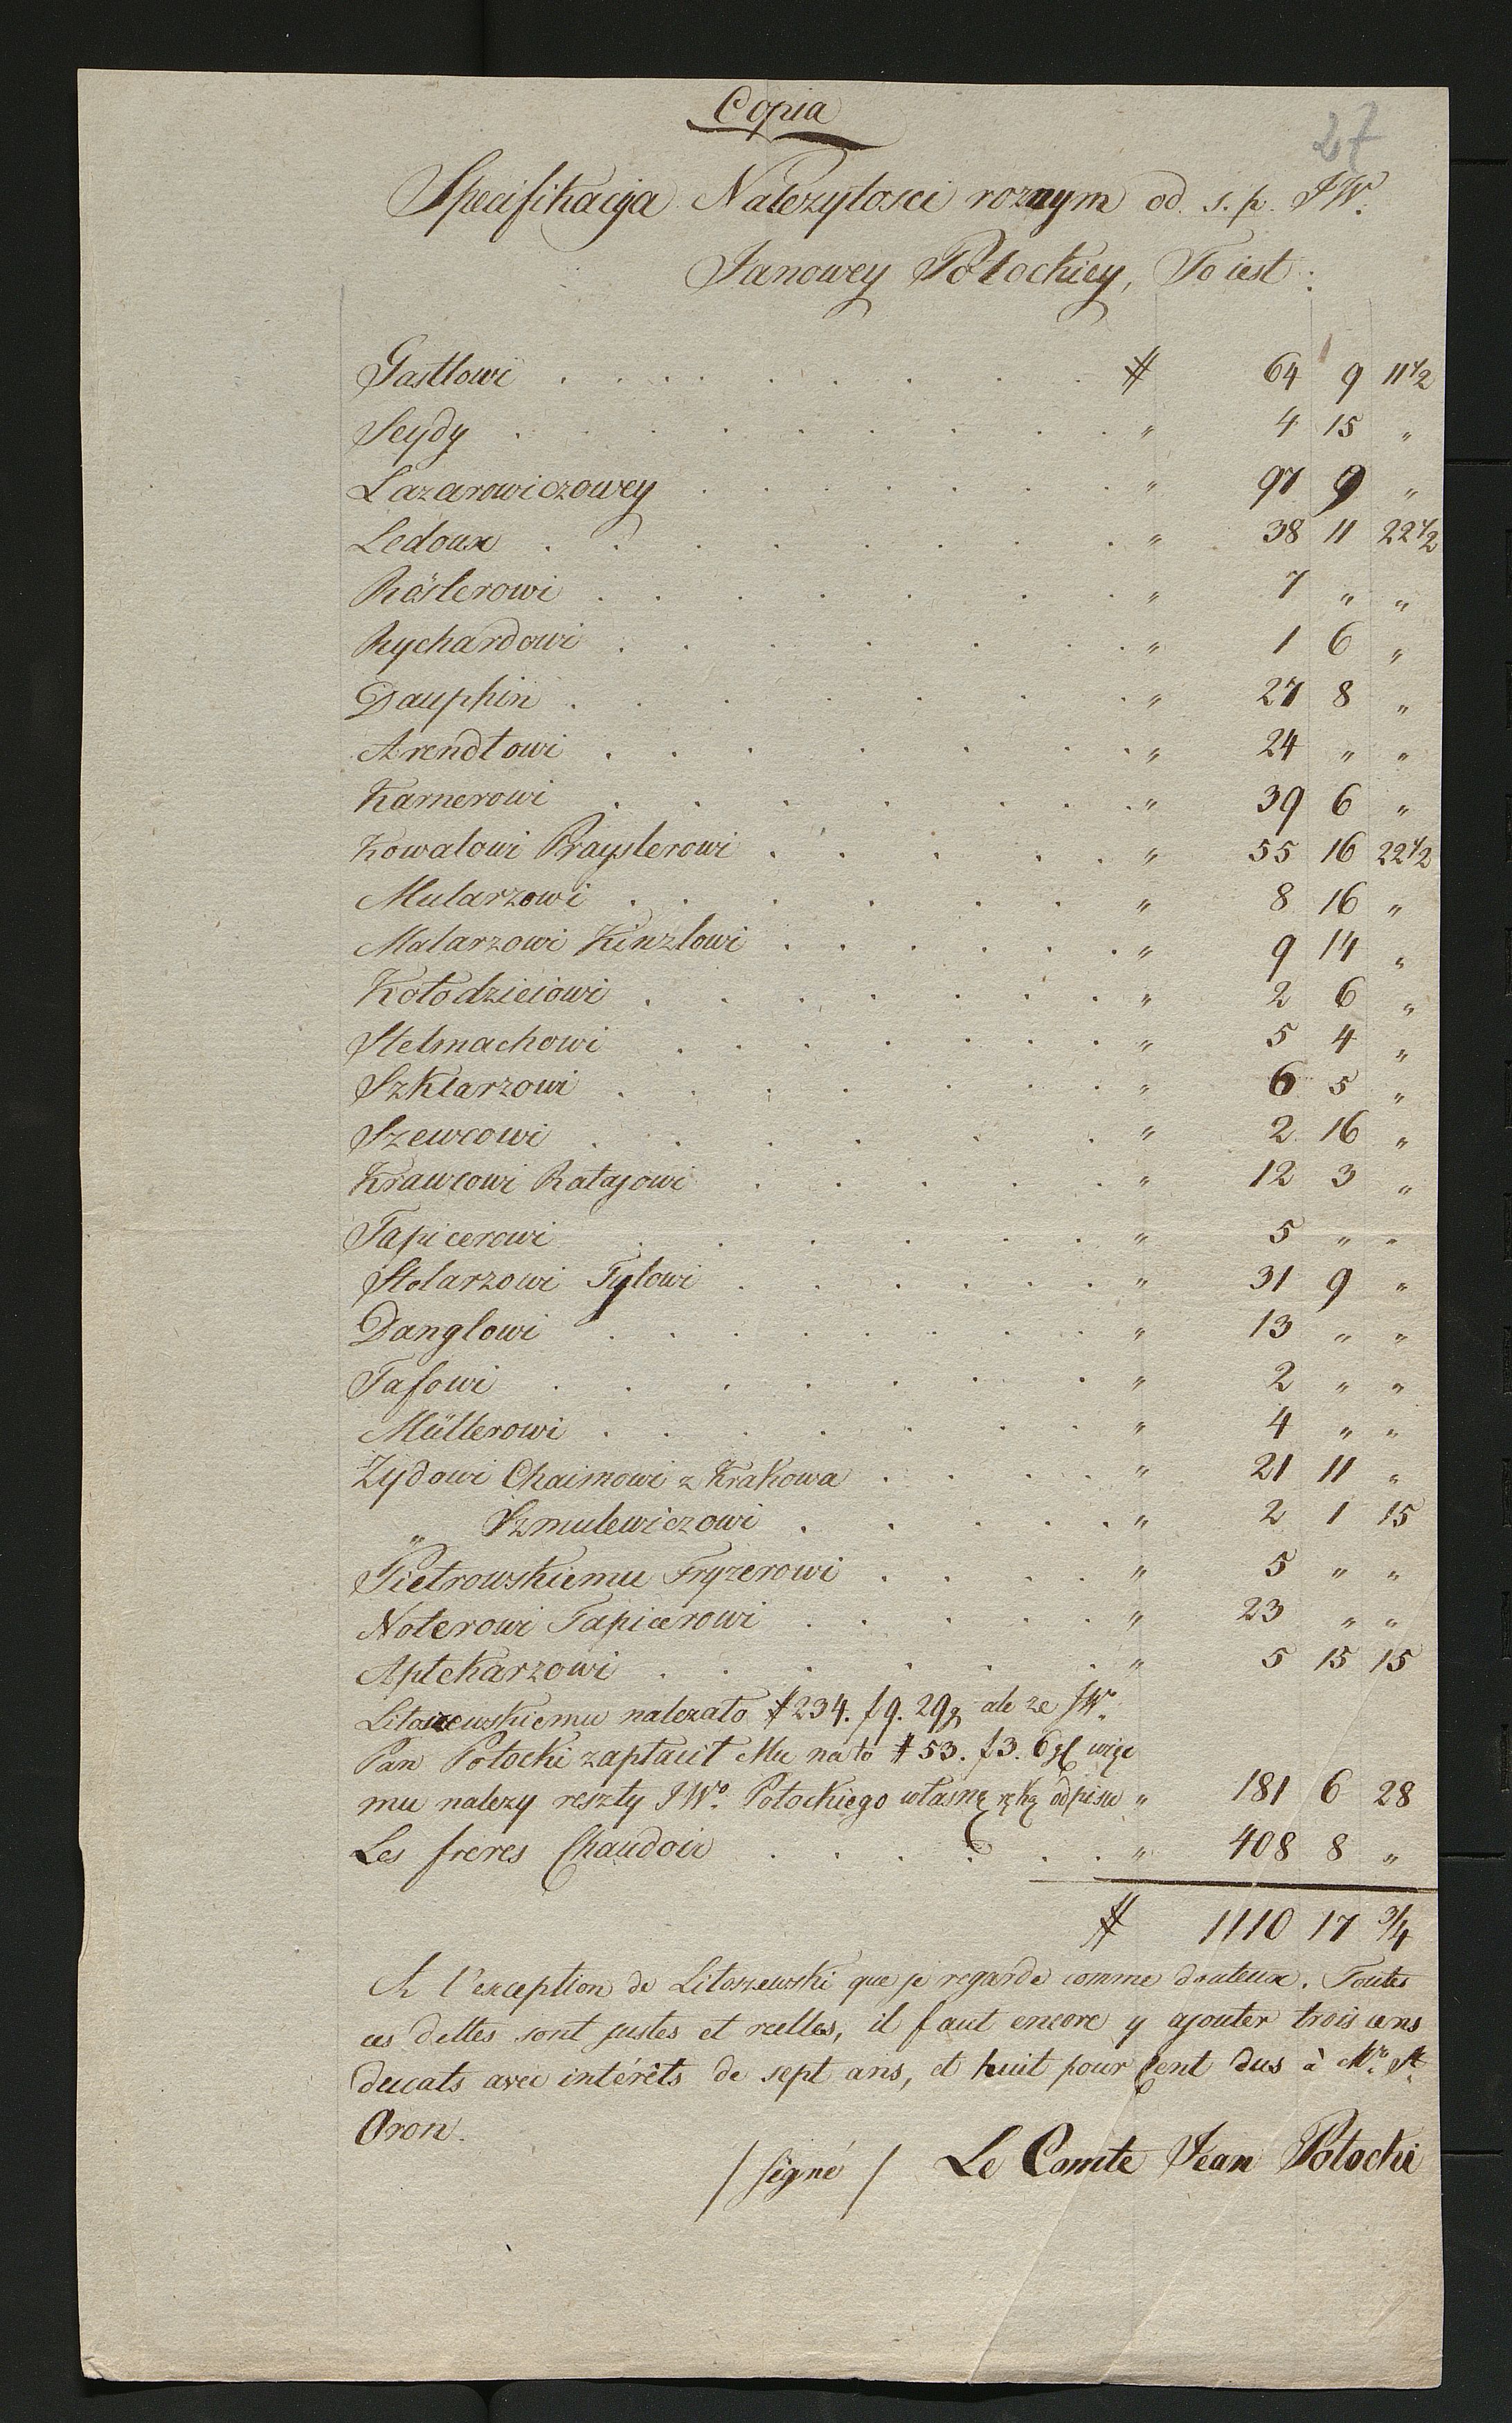 Copia
27
Specifikacyja Należytosci roznym od. s. p. JW.
Janowey Potockiey, To iest:
Gastlowi . . . . . . . . . # 64 9 11 1/2
Seydy . . . . . . . . . " 4 15 "
Lazarowiczowey . . . . . . . " 97 9 "
Ledoux . . . . . . . . " 38 11 22 1/2
Röslerowi . . . . . . . " 7 " "
Rychardowi . . . . . . . " 1 6 "
Dauphin . . . . . . . " 27 8 "
Arendtowi . . . . . . . " 24 " "
Karnerowi . . . . . . . " 39 6 "
Kowalowi Prayslerowi . . . . . " 55 16 22 1/2
Mularzowi . . . . . . " 8 16 "
Malarzowi Kinzlowi . . . . . . " 9 14 "
Kołodzieiowi . . . . . . . " 2 6 "
Stelmachowi . . . . . . . " 5 4 "
Szklarzowi . . . . . . . " 6 5 "
Szewcowi . . . . . . " 2 16 "
Krawcowi Ratajowi . . . . . " 12 3 "
Tapicerowi . . . . . . " 5 " "
Stolarzowi Tylowi . . . . . . " 31 9 "
Danglowi . . . . . . . . " 13 " "
Tafowi . . . . . . . " 2 " "
Müllerowi . . . . . . . " 4 " "
Żydowi Chaimowi z Krakowa . . . . " 21 11 "
" Szmulewiczowi . . . . . " 2 1 15
Pietrowskiemu Fryzerowi . . . . " 5 " "
Noterowi Tapicerowi . . . . . " 23 " "
Aptekarzowi . . . . . . " 5 15 15
Litoszewskiemu nalezało # 234. f 9. 29 g ale ze JWo.
Pan Potocki zapłacił Mu na to # 53. f 3. 6 gl więc
mu nalezy reszty JWo. Potockiego własną ręką odpisu " 181 6 28
Les freres Chaudoir . . . . . . " 408 8 "
# 1110 17 3/4
A l'exception de Litoszewski que je regarde comme douteux. Toutes
ces dettes sont justes et reelles, il faut encore y ajouter trois cens
ducats avec intérêts de sept ans, et huit pour Cent dus à Mr. St.
Oron.
/ signé / Le Comte Jean Potocki